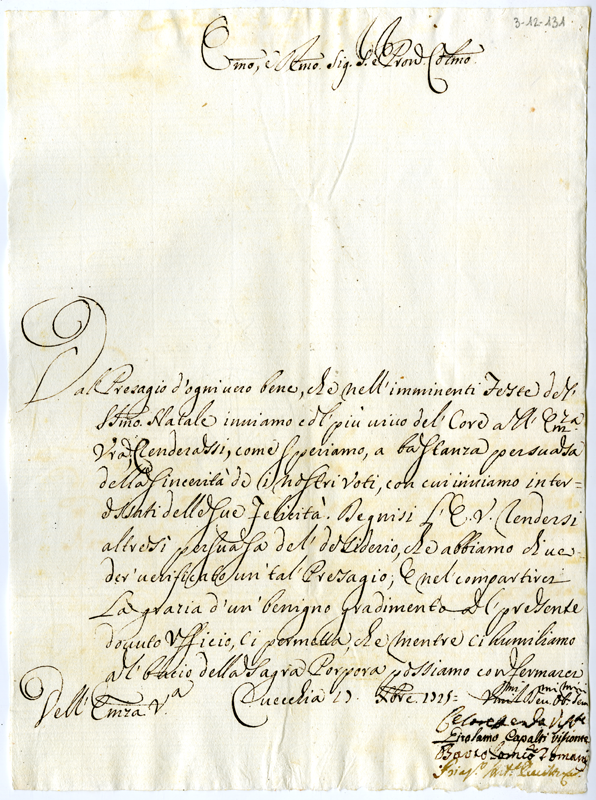 3-12-131.
Emo, e Rmo. Sig. S. e Pron Colmo
Dal Presagio d'ogni vero bene, che nell'imminenti Feste del
Smo. Natale inviamo col più vivo del Core all' Emza
Vra. Renderassi, come speriamo, a bastanza persuasa
della sincerità de i nostri voti, con cui viviamo inter=
essati delle sue Felicità. Degnisi l'E. V. Rendersi
altresi persuasa del desiderio, che abbiamo di ve=
der verificato un tal Presagio, e nel compartirci
La grazia d'un benigno gradimento del presente
dovuto Ufficio, ci permetta, che mentre ci humiliamo
al bacio della Sagra Porpora possiamo confermarci
Dell' Emza Va 
Girolamo Capalti Visconte